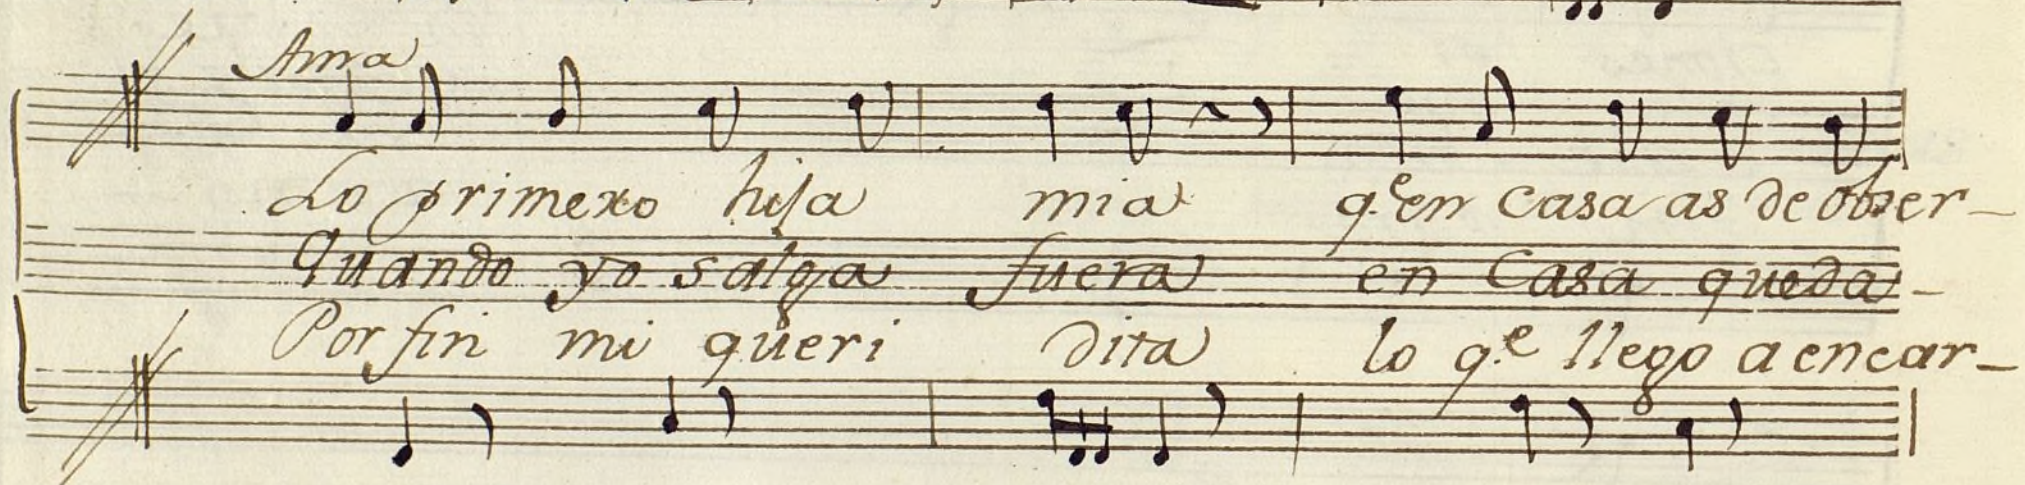 Ama
Lo primero hija mia q.e en casa as de obser-
Quando yo salga fuera en Casa queda-
Por fin mi queri dita lo q.e llego a encar-